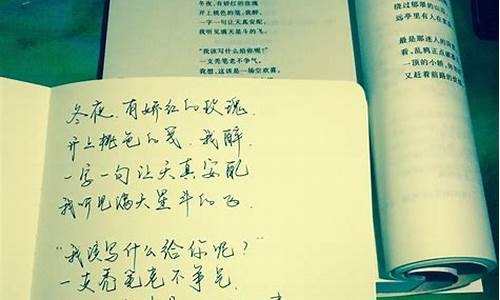 冬夜，有娇红的玫瑰
开上桃色的笺，我醉，
一字一句让天真安配，
我听见满天星斗的飞。
“我该写什么给你呢？”
一支秃笔老不争气，
我想，这该是一场空欢喜，
绕过郁翠的山
远亭里有人在
最是那迷人的
看，乱鸦正点
一顶的小轿，
又赶着前路的
冬夜，有娇红的玫瑰，
开上桃色的笺，我醉，
一字一句让天真安配
我听见满天星斗的飞.
“我该写什么给你呢？”
一支秃笔老不争气，